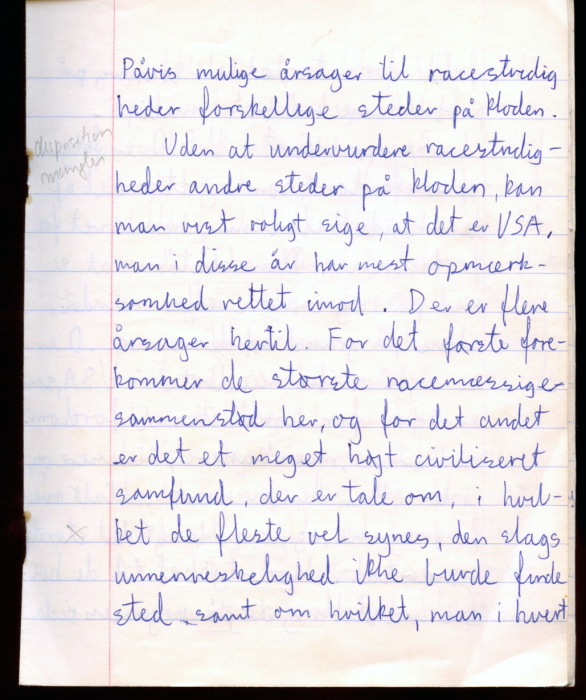 Påvis mulige årsager til racestridig
heder forskellige steder på kloden.
disposition
mangler
Uden at undervurdere racestridig-
heder andre steder på kloden, kan
man vist roligt sige, at det er USA,
man i disse år har mest opmærk-
somhed rettet imod. Der er flere
årsager hertil. For det første fore-
kommer de største racemæssige
sammenstød her, og for det andet
er det et meget højt civiliseret
samfund, der er tale om, i hvil-
ket de fleste vel synes, den slags
umenneskelighed ikke burde finde
sted samt om hvilket, man i hvert